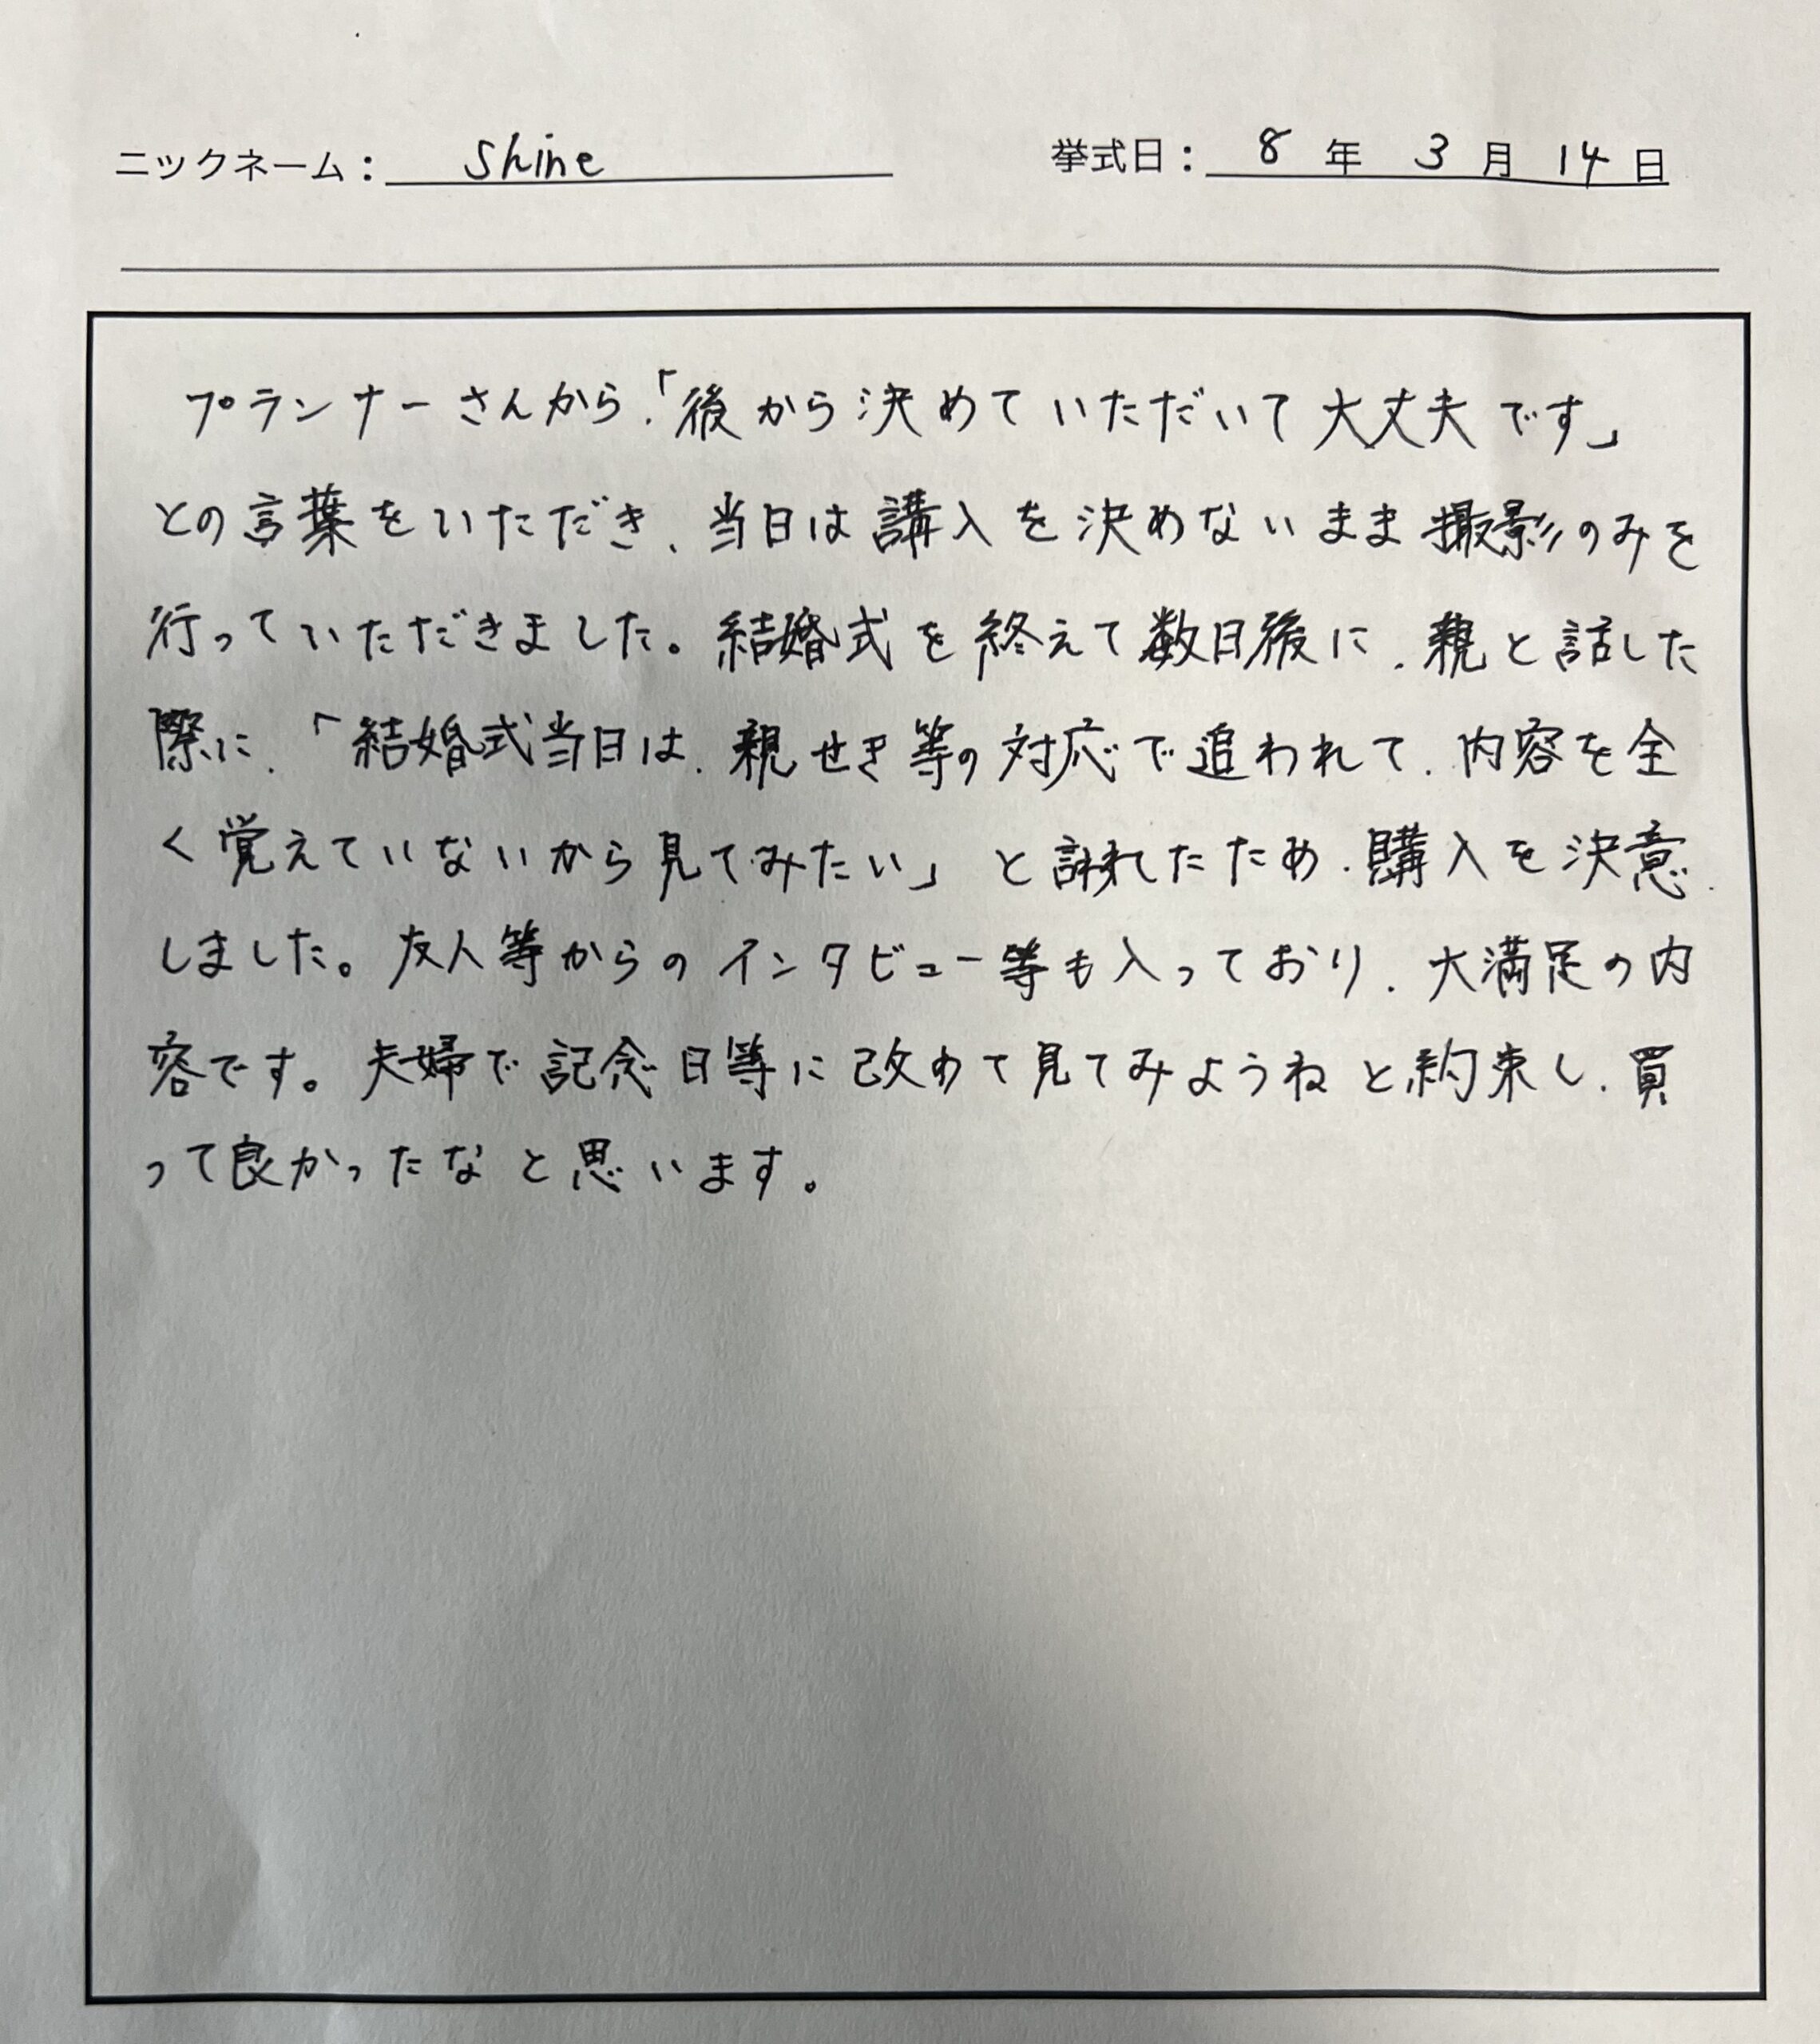 ニックネーム： Shine 挙式日： 8 年 3 月 14 日
プランナーさんから、「後から決めていただいて大丈夫です」
との言葉をいただき、当日は講入を決めないまま撮影のみを
行っていただきました。結婚式を終えて数日後に、親と話した
際に、「結婚式当日は、親せき等の対応で追われて、内容を全
く覚えていないから見てみたい」と言われたため、購入を決意
しました。友人等からのインタビュー等も入っており、大満足の内
容です。夫婦で記念日等に改めて見てみようねと約束し、買
って良かったなと思います。